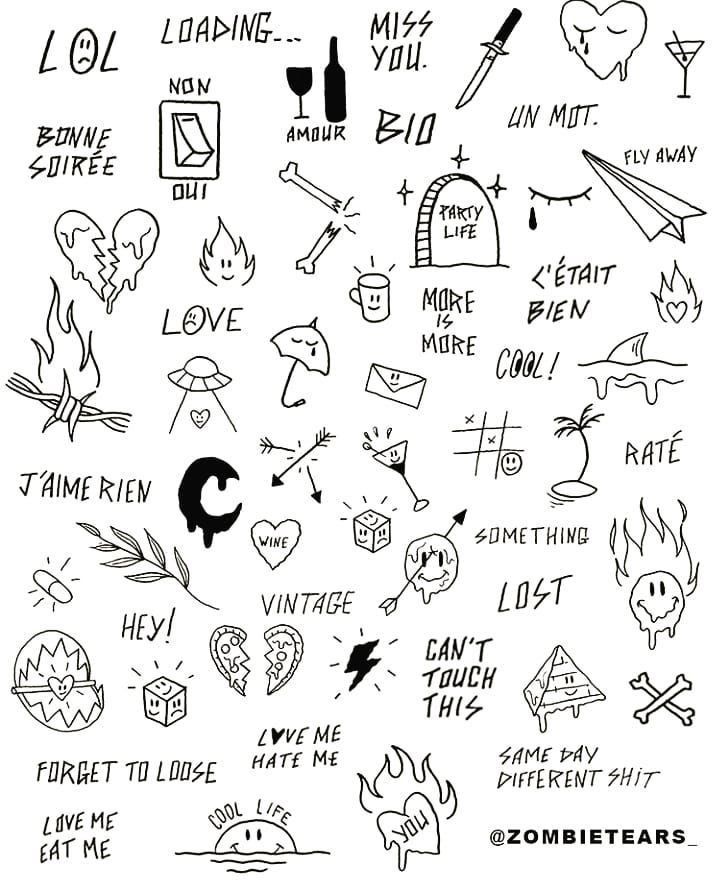 LOL
LOADING...
MISS
YOU.
NON
OUI
AMOUR
BIO
UN MOT.
BONNE
SOIRÉE
FLY AWAY
PARTY
LIFE
C'ÉTAIT
BIEN
LOVE
MORE
IS
MORE
COOL!
RATÉ
J'AIME RIEN
WINE
SOMETHING
LOST
VINTAGE
HEY!
CAN'T
TOUCH
THIS
LOVE ME
HATE ME
SAME DAY
DIFFERENT SHIT
FORGET TO LOOSE
YOU
LOVE ME
EAT ME
COOL LIFE
@ZOMBIETEARS_